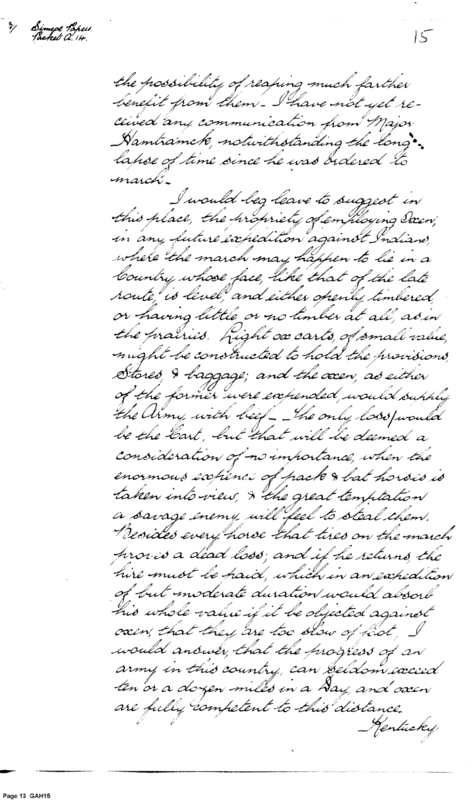 3/ Simcoe Papers.
Packet A. 14.
15
the possibility of reaping much farther
benefit from them - I have not yet re-
ceived any communication from Major
Hamtramck, notwithstanding the long
lapse of time since he was ordered to
march -
I would beg leave to suggest in
this place, the propriety of employing Oxen,
in any future expedition against Indians,
where the march may happen to lie in a
Country whose face, like that of the late
route, is level, and either openly timbered
or having little or no timber at all, as in
the prairies. Light ox carts, of small value,
might be constructed to hold the provisions,
Stores, & baggage; and the oxen, as either
of the former were expended, would supply
the Army, with beef - the only loss would
be the Cart, but that will be deemed a
consideration of no importance, when the
enormous expence of pack & bat horses is
taken into view, & the great temptation
a savage enemy, will feel to steal them.
Besides every horse that tires on the march
proves a dead loss; and if he returns, the
hire must be paid, which in an expedition
of but moderate duration would absorb
his whole value if it be objected against
oxen, that they are too slow of foot, I
would answer, that the progress of an
army in this country, can seldom exceed
ten or a dozen miles in a Day, and oxen
are fully competent to this distance.
Kentucky
Page 13 GAH15